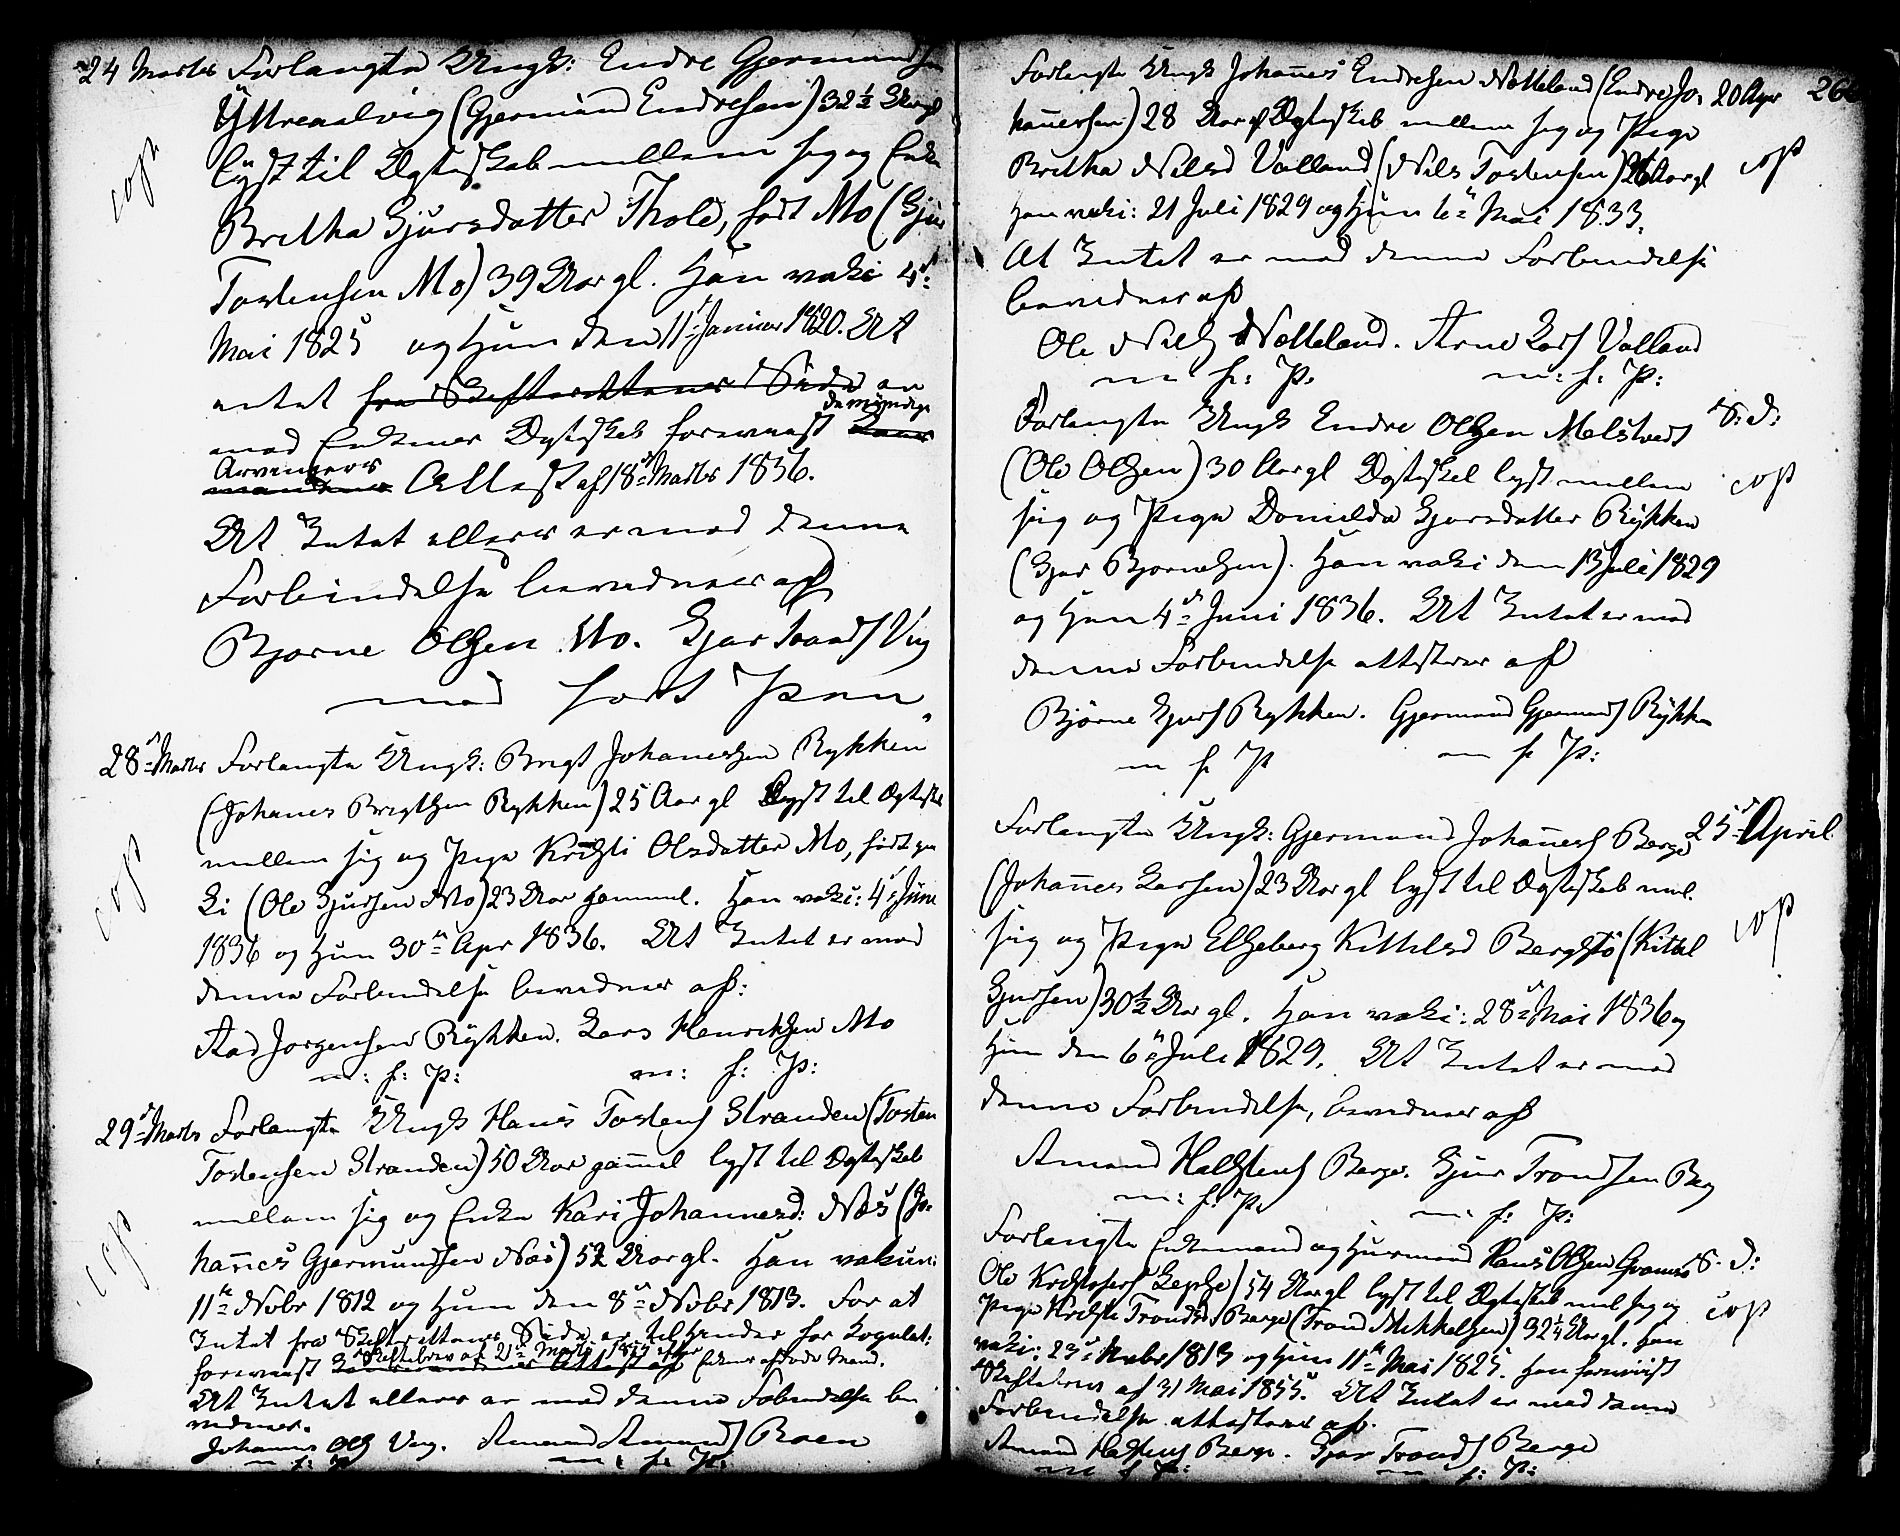 24 Marts Forlangte Ungk: Endre Gjermundsen
Yttreaalvig (Gjermund Endresen) 32½ Aargl
cop
lyst til Ægteskab mellem sig og Enke
Britha Gjursdatter Thole, født Mo (Gjur
Tostensen Mo) 39 Aar gl. Han vaki 4d:
Mai 1825 og Hun den 11te Januar 1820. At
intet fra Skifterettens Side er
mod Enkens Ægteskab forevises de myndige
Arvingers Attest af 18de Marts 1856.
At Intet ellers er mod denne
Forbindelse bevidner af
Bjørne Olsen Mo. Gjur Vig
med ført Pen
28de Marts Forlangte Ungk: Brigt Johanesen Rykken
(Johanes Brigtsen Rykken) 25 Aar gl Lyst til Ægtesk
cop
mellem sig og Pige Kristi Olsdatter Mo, født
(Ole Gjursen Mo) 23 Aar gammel. Han vaki: 4de Juni
1836 og Hun 30te Apr 1836. At Intet er mod
denne Forbindelse bevidner af:
Aad Jørgensen Rykken. Lars Henriksen Mo
m: f: P: m: f: P:
29de Marts Forlangte Ungk Hans Tostens Stranden (Tosten
Tostensen Stranden) 50 Aar gammel lyst til Ægteskab
mellem sig og Enke Kari Johannesd: Næs (Jo-
cop
hannes Gjermundsen Næs) 52 Aar gl. Han vakun:
11te Novbr 1812 og Hun den 8de Novbr 1813. For at
Intet fra Skifterettens Side er til Hinder for Copulat:
forevises Skiftebrev af 21de Marts efter Enkens afdøde Mand.
At Intet ellers er mod denne Forbindelse be
vidner.
Johannes Ols Vig. Amund Amunds Roen
m: f: P m: f: P:
Forlangte Ungk Johannes Endresen Netteland (Endre Jo- 20 Apr
hannessen) 28 Aar gl Ægteskab mellem sig og Pige
Britha Nilsd Valland (Nils Tostensen) 26 Aar gl
cop
Han vaki: 21 Juli 1829 og Hun 6te Mai 1833.
At Intet er mod denne Forbindelse
bevidner af
Ole Niels Netteland. Arne Lars Valland
m f: P. m: f: P:
Forlangte Ungk Endre Olsen Melstveit S: D:
(Ole Olsen) 30 Aar gl Ægteskab lyst mellem
cop
sig og Pige Domilda Gjursdatter Rykken
(Gjur Bjørnesen). Han vaki den 13 Juli 1829
og Hun 4de Juni 1836. At Intet er mod
denne Forbindelse attesterer af
Bjørne Gjurs Rykken. Gjermund Gjermunds Rykken
m f P m f P:
Forlangte Ungk: Gjermund Johannes Berge 25de April
(Johannes Larsen) 23 Aar gl lyst til Ægteskab mel.
cop
sig og Pige Elseberg Kittelsd Bergstø (Kittel
Gjursen) 30½ Aar gl. Han vaki: 28de Mai 1836 og
Hun den 6te Juli 1829. At Intet er mod
denne Forbindelse, bevidner af
Amund Halstens Berge. Gjur Trondsen Berg
m: f: P. m: f: P:
Forlangte Enkemand og Husmand Hans Olsen S. D:
Ole Kristofers 54 Aar gl lyst til Ægteskab mel sig og
cop
Pige Kristi Trondsd Berge (Trond Mikkelsen) 32¼ Aar gl. Han
vaki: 23de Novbr 1813 og Hun 11te Mai 1825. Han foreviist
Skiftebrev af 31 Mai 1855. At Intet er mod denne
Forbindelse attesterer af.
Amund Halstens Berge. Gjur Tronds Berge
m f P: m f: P: